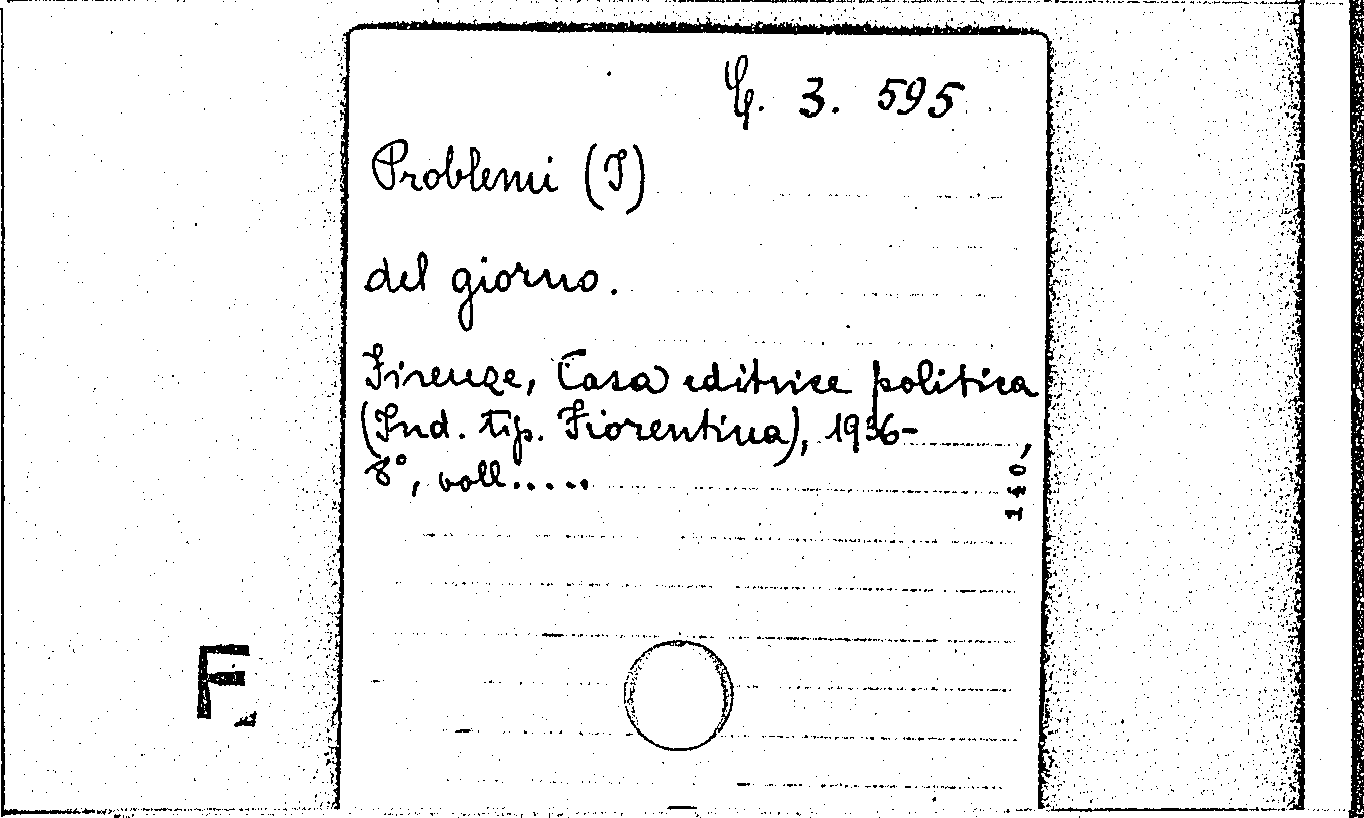 G. 3. 595
Problemi (I)
del giorno.
Firenze, Casa editrice politica
(Ind. tip. Fiorentina), 1936-
8°, voll.....
140,
F.